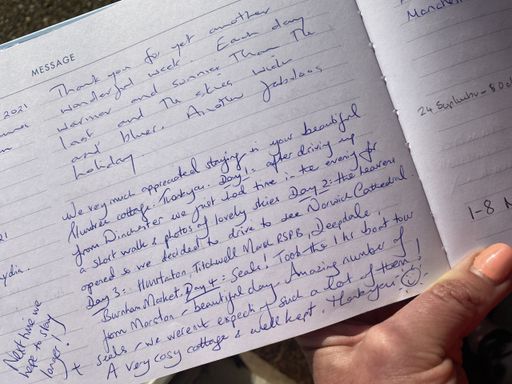 2021
MESSAGE
Thank you for yet another
wonderful week. Each day
warmer and sunnier than the
last and the skies wide
and blue. Another fabulous
holiday.
We very much appreciated staying in your beautiful
cottage. Thankyou. Day 1: after driving up
from we just had time in the evening for
a short walk & photos of lovely skies Day 2: the heavens
opened so we decided to drive to see Norwich Cathedral.
Day 3: Hunstanton, Titchwell Marsh RSPB, Deepdale,
Burnham Market. Day 4: Seals! Took the 1 hr boat tour
from Morston - beautiful day. Amazing number of
seals (we weren't expecting such a lot of them!
+ A very cosy cottage & well kept. Thank you!
Next time we
hope to stay
longer!
21
24 September - 8 Oct
1-8